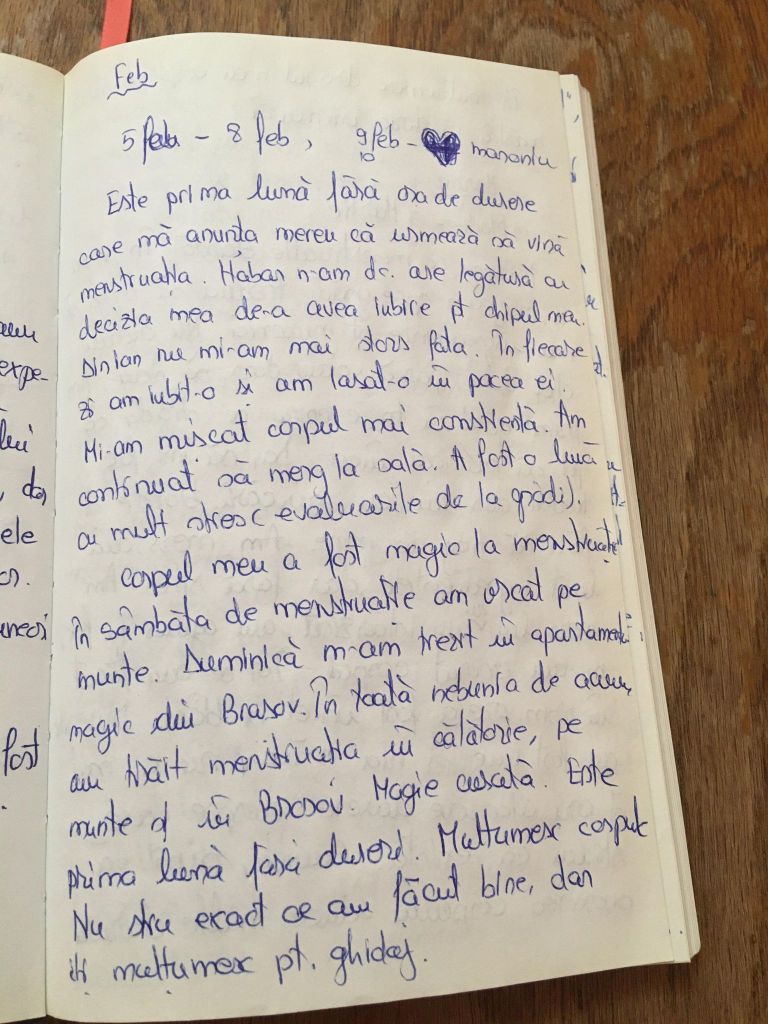 Feb
5 feb - 8 feb, 9 feb - masaniu
10
Este prima lună fără ora de durere
care mă anunța mereu că urmează să vină
menstruația. Habar n-am dc. are legătură cu
decizia mea de-a avea iubire pt chipul meu.
Din Ian nu mi-am mai stors fața. În fiecare
zi am iubit-o și am lasat-o în pacea ei.
Mi-am mișcat corpul mai conștientă. Am
continuat să merg la sală. A fost o lună
cu mult stres (evaluarile de la grădi).
corpul meu a fost magic la menstruație
În sâmbăta de menstruație am urcat pe
munte. Duminică m-am trezit în apartament
magic din Brasov. În toată nebunia de acum,
am trăit menstruația în călătorie, pe
munte și în Brasov. Magie curată. Este
prima lună fără dureri. Mulțumesc corpule
Nu știu exact ce am făcut bine, dar
îți mulțumesc pt. ghidaj.
aum
expe-
lui
, dar
ele
fost